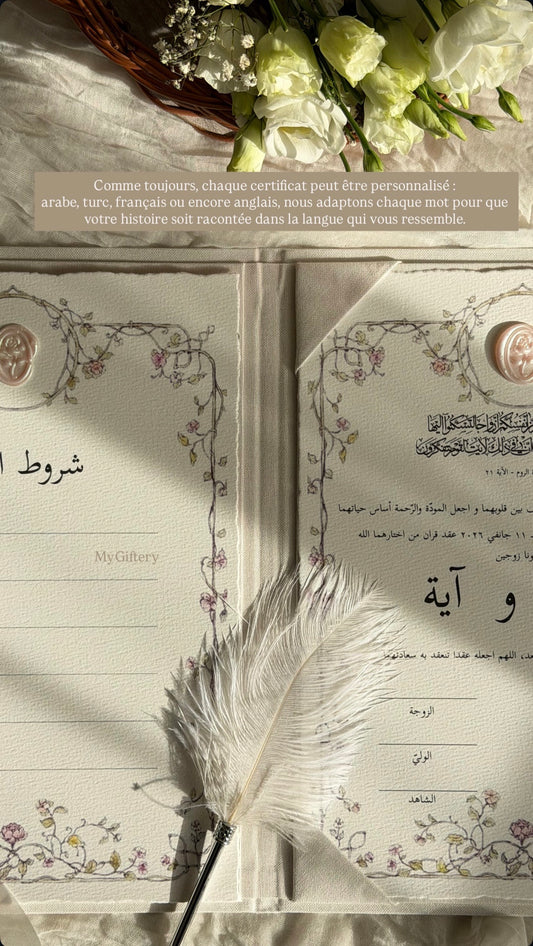 Comme toujours, chaque certificat peut être personnalisé :
arabe, turc, français ou encore anglais, nous adaptons chaque mot pour que
votre histoire soit racontée dans la langue qui vous ressemble.
شروط
MyGiftery
الروم - الآية ٢١
بين قلوبهما و اجعل المودّة والرّحمة أساس حياتهما
١١ جانفي ٢٠٢٦ عقد قران من اختارهما الله
زوجين
و آية
اللهم اجعله عقدا تنعقد به سعادتهما
الزوجة
الوليّ
الشاهد